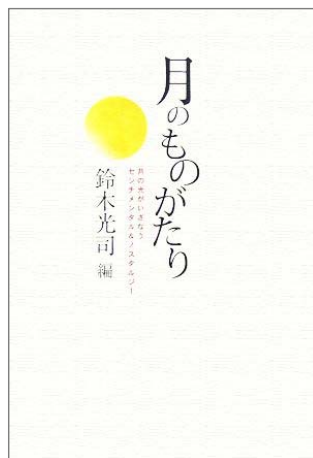 月のものがたり
月の光がいざなう
センチメンタル&ノスタルジー
鈴木光司 編